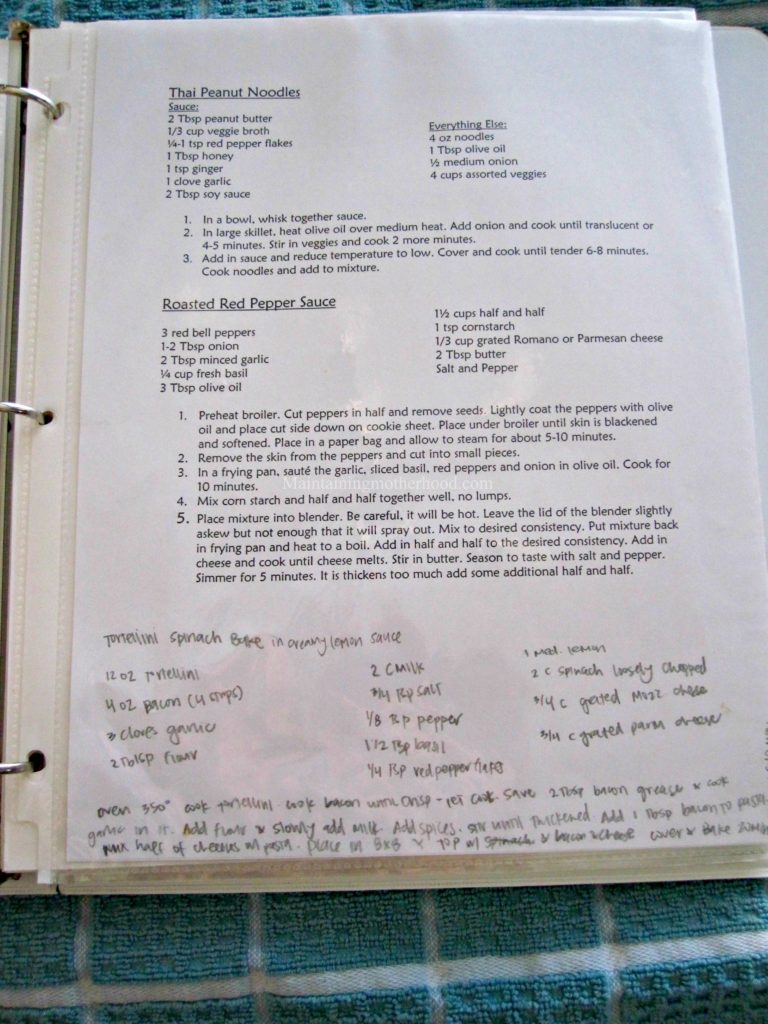 Thai Peanut Noodles
Sauce:
2 Tbsp peanut butter
1/3 cup veggie broth
¼-1 tsp red pepper flakes
1 Tbsp honey
1 tsp ginger
1 clove garlic
2 Tbsp soy sauce
Everything Else:
4 oz noodles
1 Tbsp olive oil
½ medium onion
4 cups assorted veggies
1. In a bowl, whisk together sauce.
2. In large skillet, heat olive oil over medium heat. Add onion and cook until translucent or
4-5 minutes. Stir in veggies and cook 2 more minutes.
3. Add in sauce and reduce temperature to low. Cover and cook until tender 6-8 minutes.
Cook noodles and add to mixture.
Roasted Red Pepper Sauce
3 red bell peppers
1-2 Tbsp onion
2 Tbsp minced garlic
¼ cup fresh basil
3 Tbsp olive oil
1½ cups half and half
1 tsp cornstarch
1/3 cup grated Romano or Parmesan cheese
2 Tbsp butter
Salt and Pepper
1. Preheat broiler. Cut peppers in half and remove seeds. Lightly coat the peppers with olive
oil and place cut side down on cookie sheet. Place under broiler until skin is blackened
and softened. Place in a paper bag and allow to steam for about 5-10 minutes.
2. Remove the skin from the peppers and cut into small pieces.
3. In a frying pan, sauté the garlic, sliced basil, red peppers and onion in olive oil. Cook for
10 minutes.
Maintainingmotherhood.com
4. Mix corn starch and half and half together well, no lumps.
5. Place mixture into blender. Be careful, it will be hot. Leave the lid of the blender slightly
askew but not enough that it will spray out. Mix to desired consistency. Put mixture back
in frying pan and heat to a boil. Add in half and half to the desired consistency. Add in
cheese and cook until cheese melts. Stir in butter. Season to taste with salt and pepper.
Simmer for 5 minutes. It is thickens too much add some additional half and half.
Tortellini Spinach Bake in creamy lemon sauce
12 oz Tortellini
4 oz bacon (4 strips)
3 cloves garlic
2 Tblsp flour
2 C milk
3/4 tsp salt
1/8 tsp pepper
1 1/2 tsp basil
1/4 tsp red pepper flakes
1 med. lemon
2 c spinach loosely chopped
3/4 c grated Mozz cheese
3/4 c grated parm cheese
oven 350° cook tortellini cook bacon until crisp - let cook. save 2 Tbsp bacon grease & cook
garlic in it. Add flour & slowly add milk. Add spices. stir until thickened. Add 1 tbsp bacon to pasta.
mix half of cheeses w/ pasta. place in 8x8 & top w/ spinach & bacon & cheese cover & bake